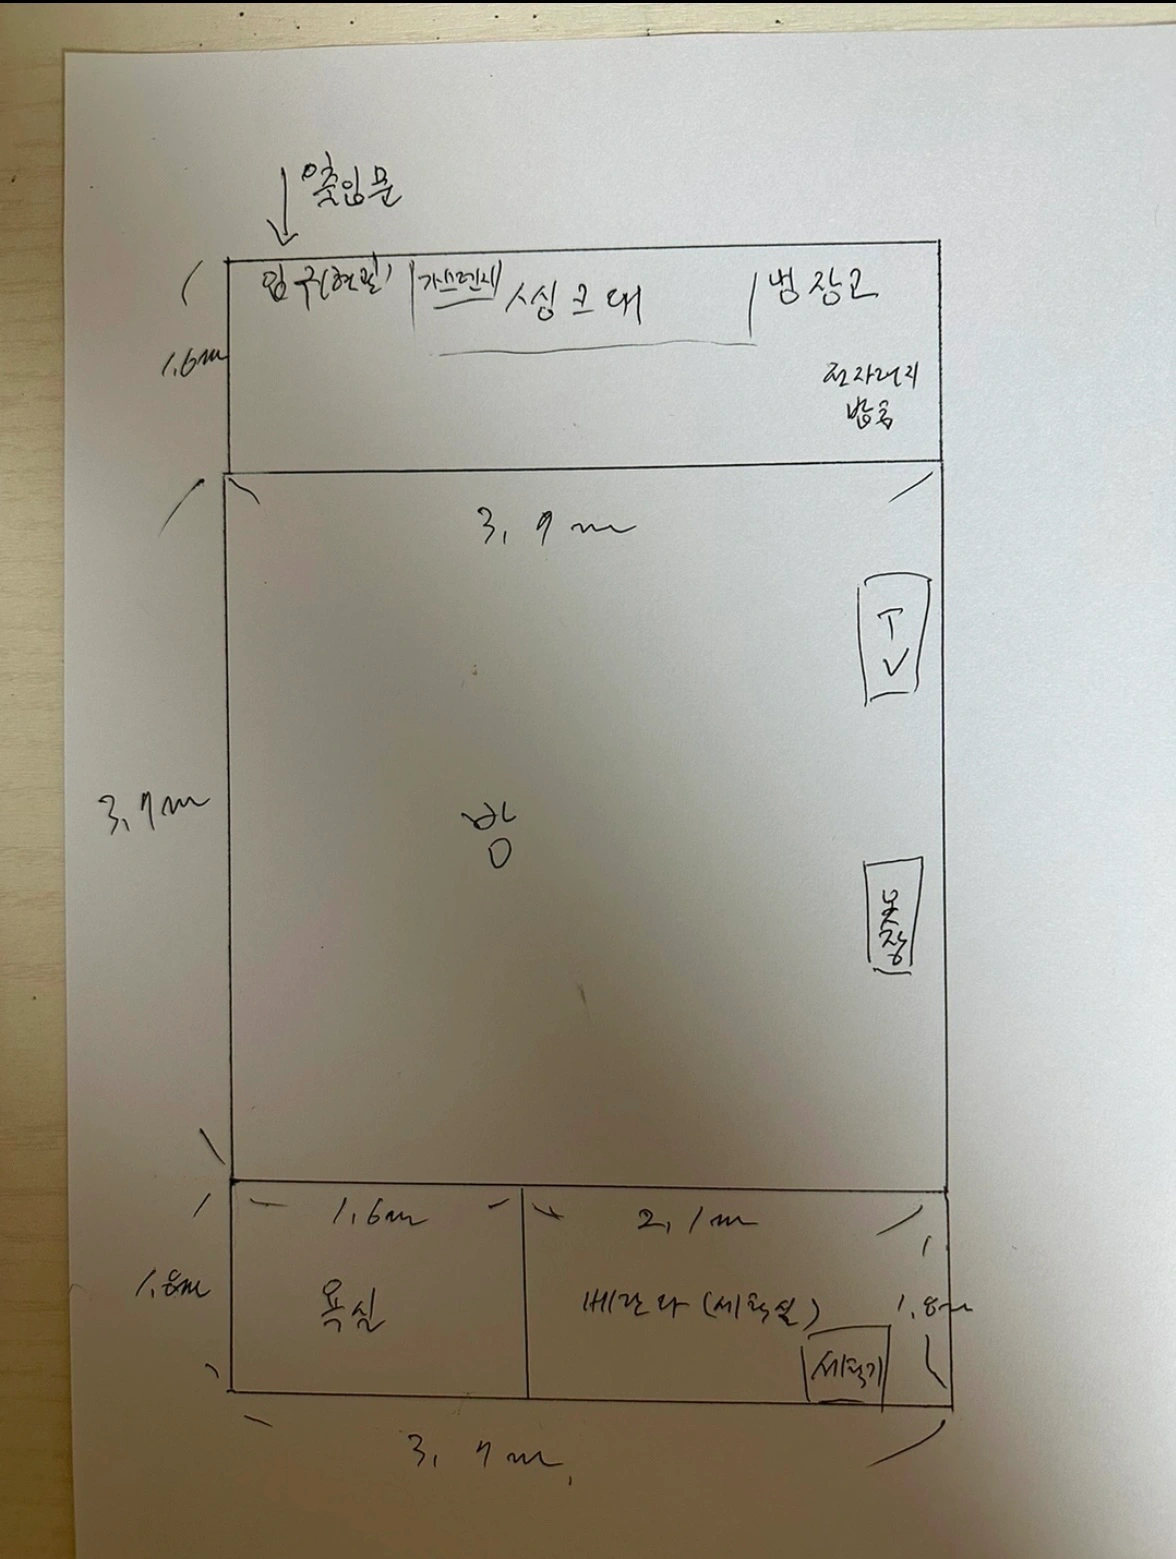 출입문
입구(현관)
가스렌지
싱크대
냉장고
1.6m
전자렌지
밥솥
3.7m
TV
3.7m
방
옷장
1.6m
2.1m
1.8m
욕실
베란다(세탁실)
1.8m
세탁기
3.7m